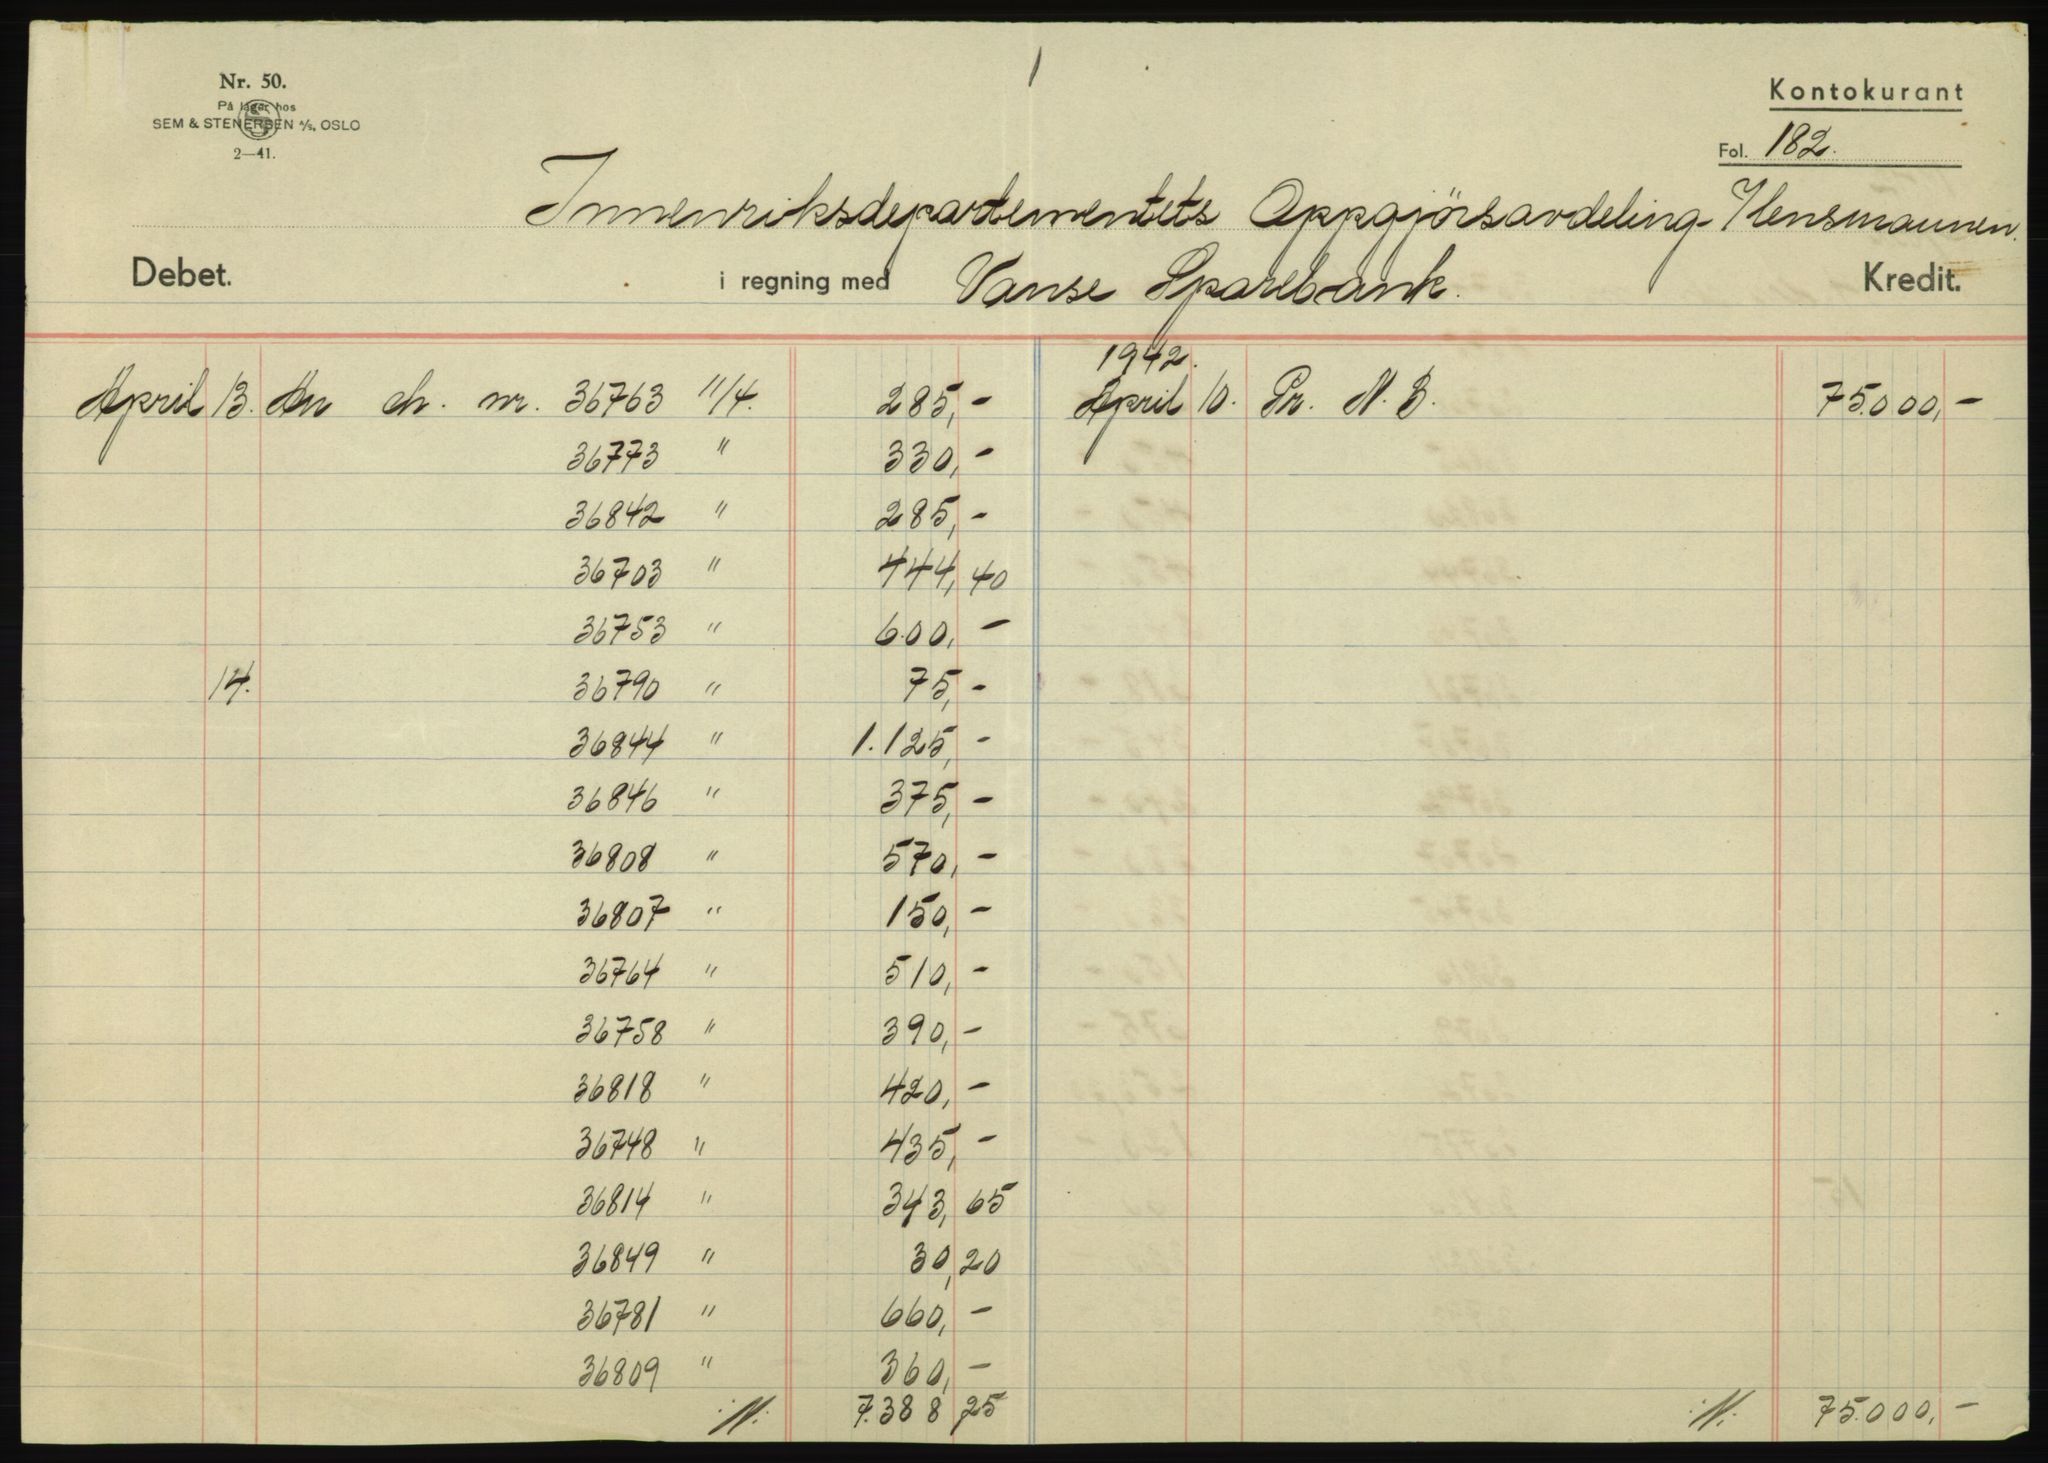 Nr. 50.
På lager hos
SEM & STENERSEN A/S, OSLO
2—41.
Kontokurant
Fol. 182.
Innenriksdepartementets Oppgjörsavdeling - Lensmannen.
Debet. i regning med Vanse Sparebank. Kredit.
1942.
April 13. An ch. nr. 36763 11/4. 285,- April 10. Pr. N. B. 75.000,-
36773 " 330,-
36842 " 285,-
36703 " 444,40
36753 " 600,-
14. 36790 " 75,-
36844 " 1.125,-
36846 " 375,-
36808 " 570,-
36807 " 150,-
36764 " 510,-
36758 " 390,-
36818 " 420,-
36748 " 435,-
36814 " 343,65
36849 " 30,20
36781 " 660,-
36809 " 360,-
7.388,25 75.000,-